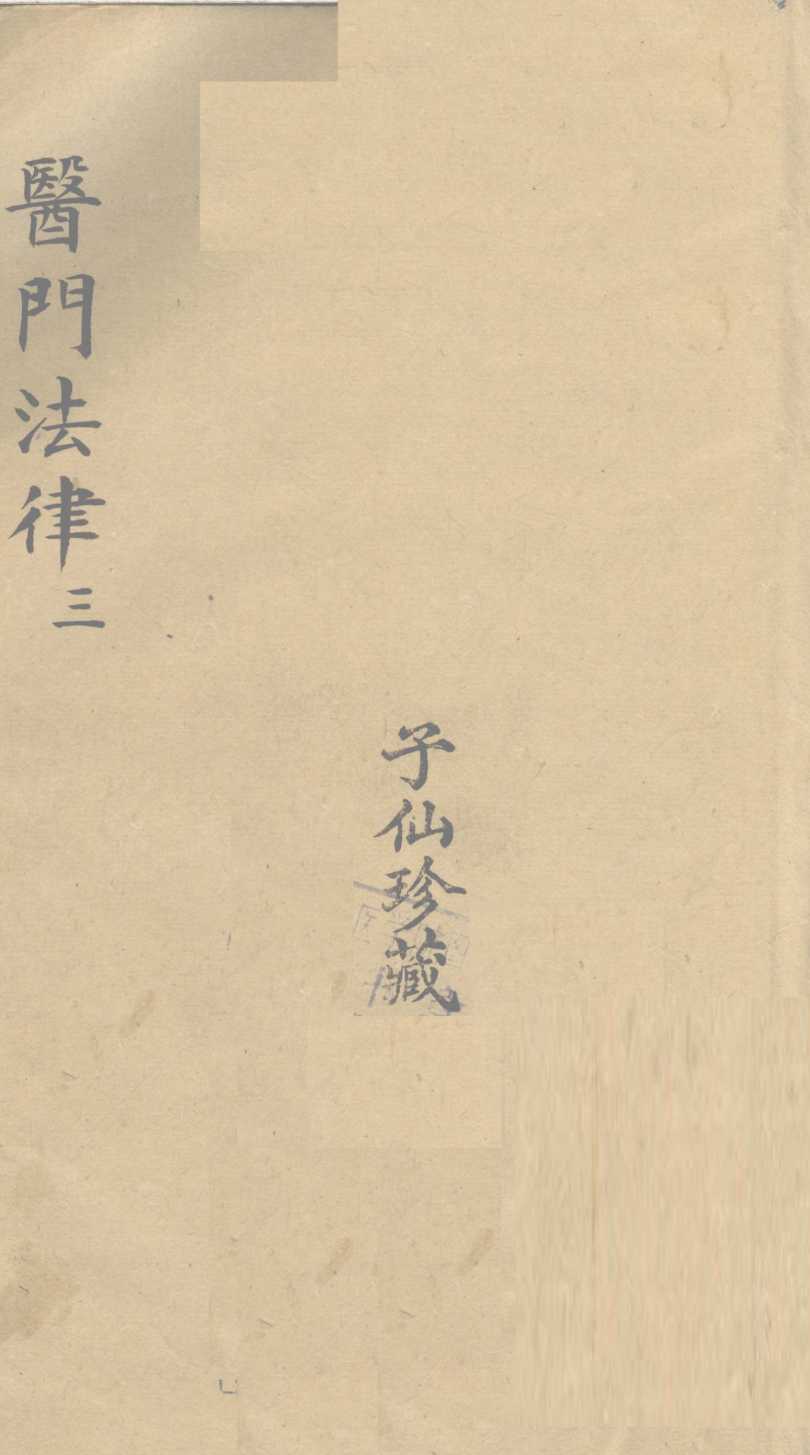 醫門法律三
子仙珍藏